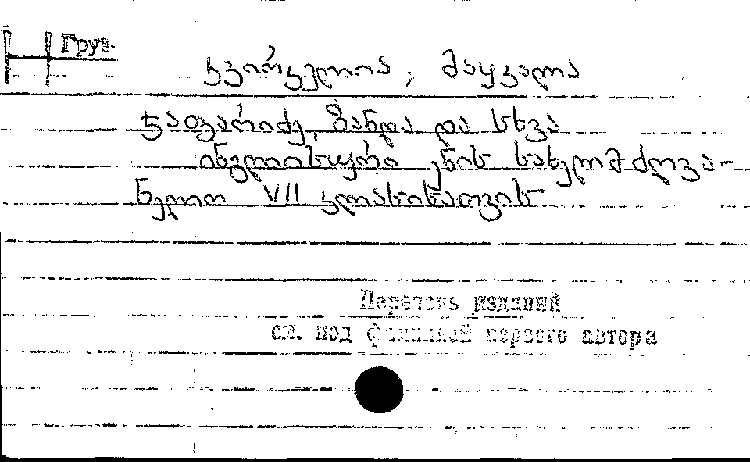 Груз.
კვირკველია, მაყვალა
ჯაფარიძე, მანდა და სხვა
ინგლისური ენის სახელმძღვა-
ნელო VII კლასისათვის
Перечень изданий
см. под фамилией первого автора